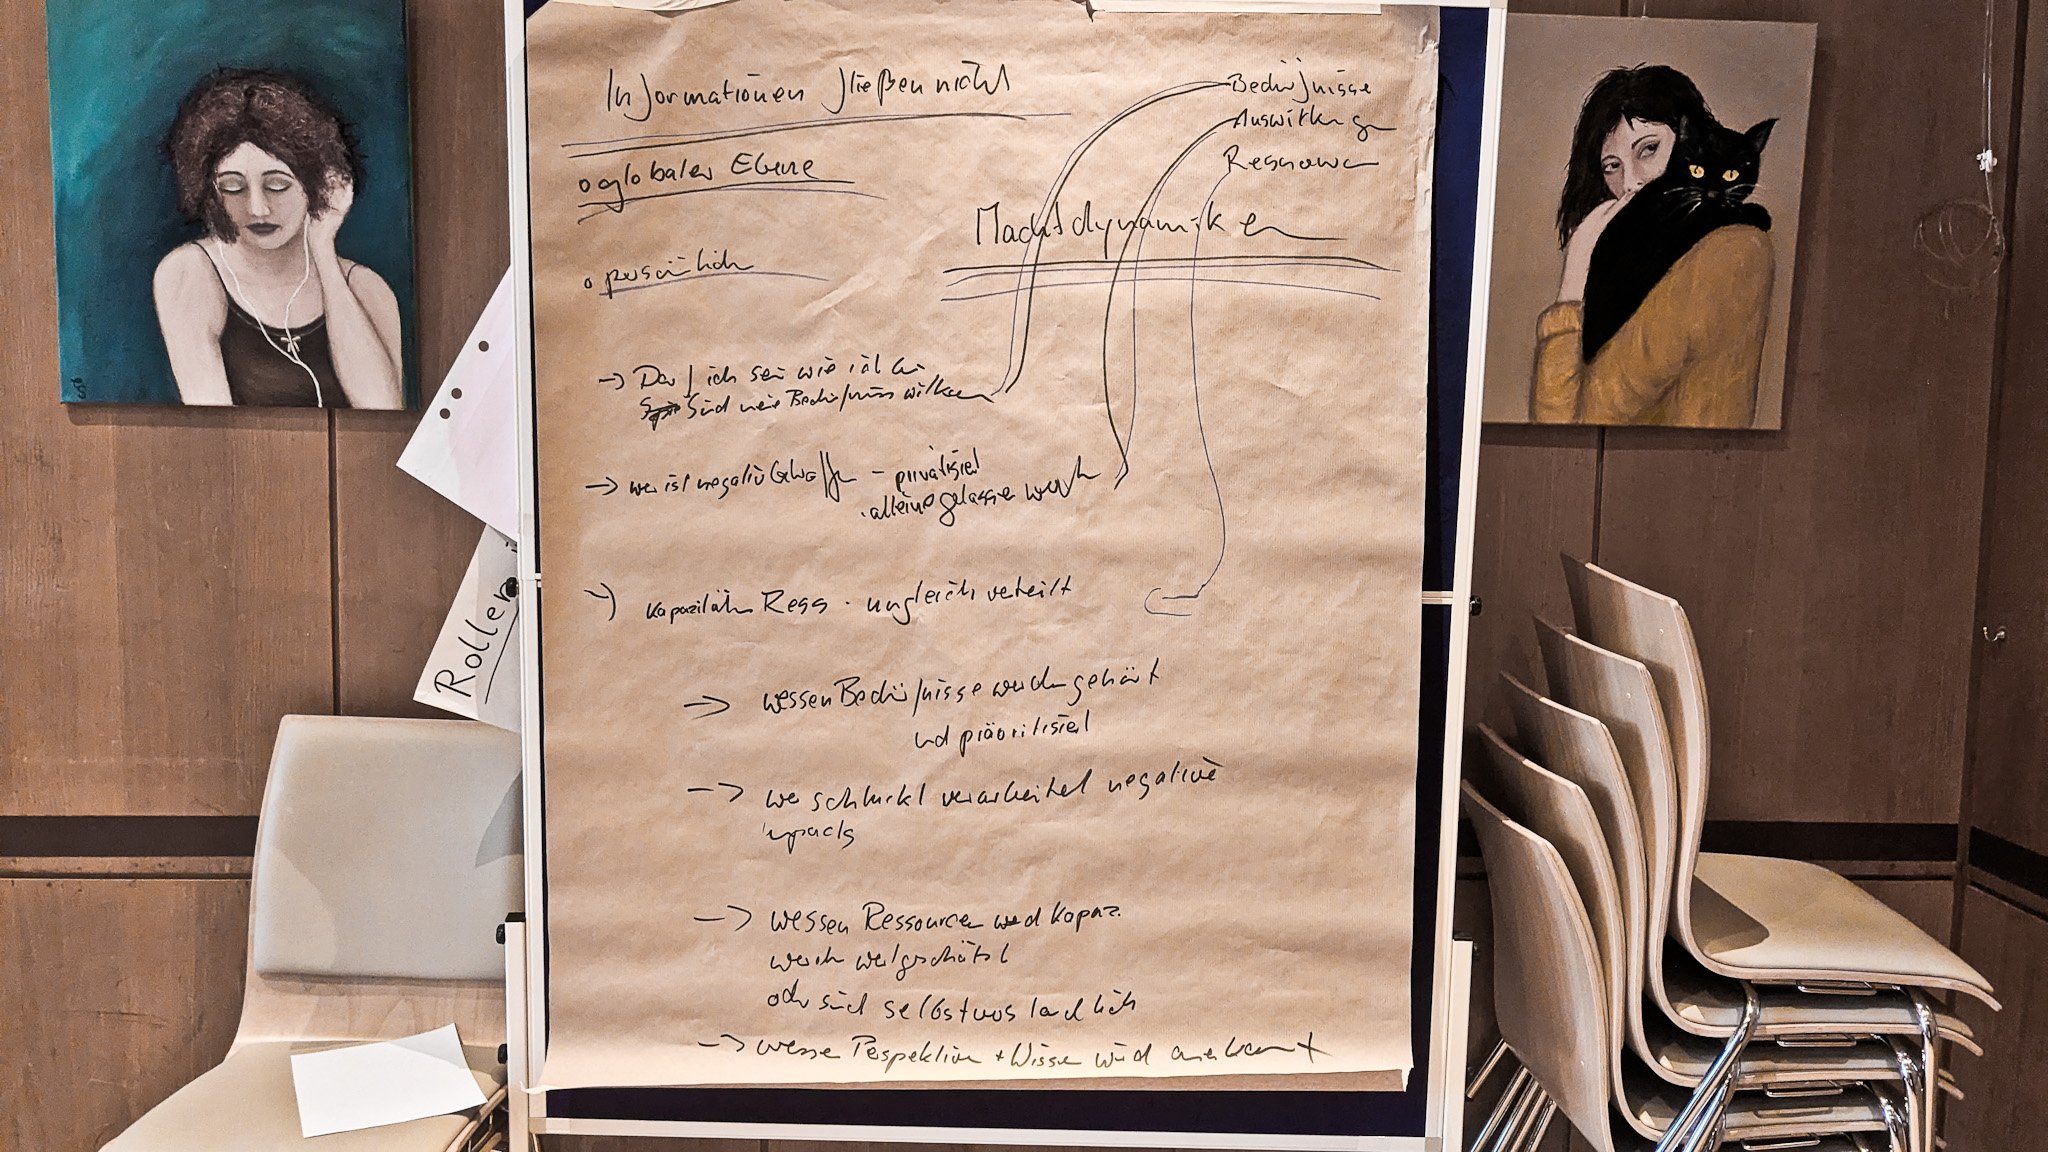 Informationen fließen nicht
Bedürfnisse
Auswirkungen
Ressourcen
o globaler Ebene
Machtdynamiken
o persönlich
→ Darf ich sein wie ich bin
Sind meine Bedürfniss willkommen
→ wer ist negativ betroffen - privatisiert
. alleine gelassen werden
→ Kapazitäten Ress. ungleich verteilt
→ wessen Bedürfnisse werden gehört
und priäoritisiert
→ wer schluckt verarbeitet negative
impacts
→ wessen Ressourcen und Kapaz.
werden wertgeschätzt
oder sind selbstverständlich
→ wessen Perspektive + Wissen wird anerkannt
Rollen